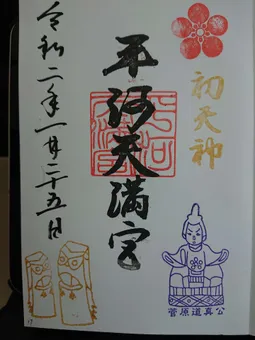 初天神
平河天満宮
令和二年一月二十五日
菅原道真公